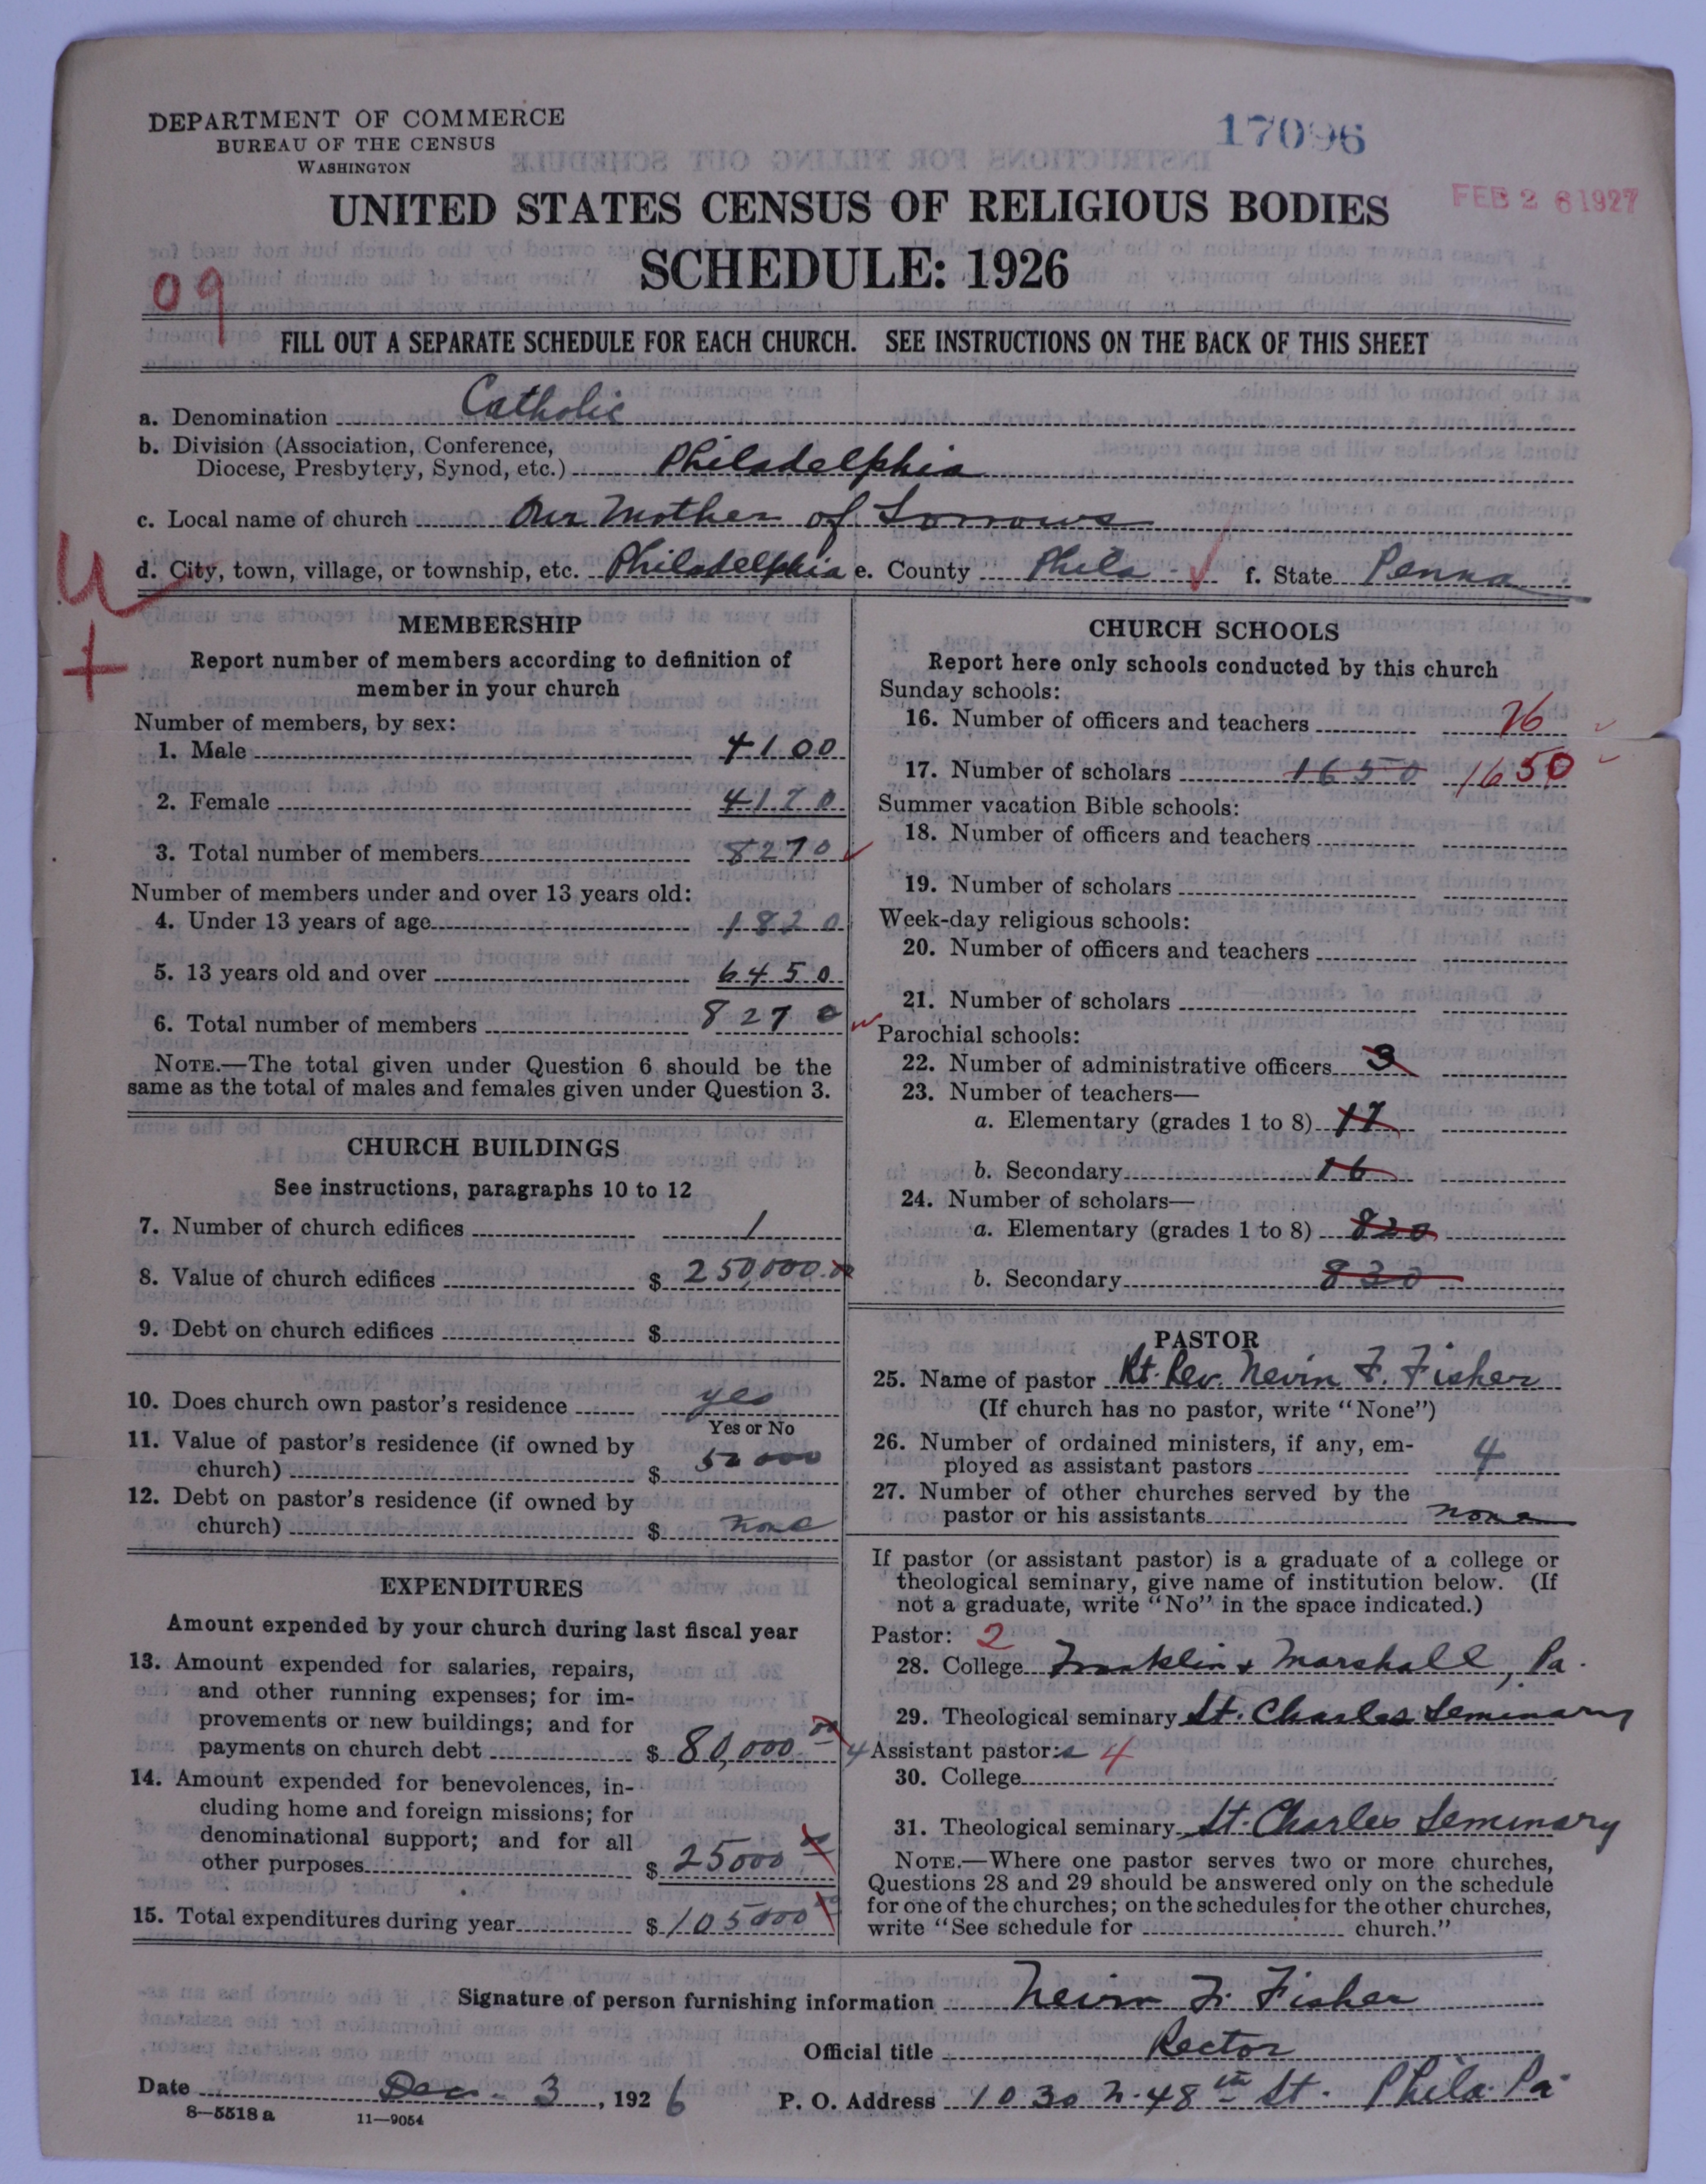 DEPARTMENT OF COMMERCE
BUREAU OF THE CENSUS
WASHINGTON
17096
UNITED STATES CENSUS OF RELIGIOUS BODIES
FEB 26 1927
SCHEDULE: 1926
09
FILL OUT A SEPARATE SCHEDULE FOR EACH CHURCH. SEE INSTRUCTIONS ON THE BACK OF THIS SHEET
a. Denomination Catholic
b. Division (Association, Conference,
Diocese, Presbytery, Synod, etc.) Philadelphia
c. Local name of church Our Mother of Sorrows
d. City, town, village, or township, etc. Philadelphia e. County Phila f. State Penna
MEMBERSHIP
Report number of members according to definition of
member in your church
Number of members, by sex:
1. Male 4100
2. Female 4170
3. Total number of members 8270
Number of members under and over 13 years old:
4. Under 13 years of age 1820
5. 13 years old and over 6450
6. Total number of members 8270
NOTE.—The total given under Question 6 should be the
same as the total of males and females given under Question 3.
CHURCH BUILDINGS
See instructions, paragraphs 10 to 12
7. Number of church edifices 1
8. Value of church edifices $ 250,000.00
9. Debt on church edifices $
10. Does church own pastor's residence yes
Yes or No
11. Value of pastor's residence (if owned by
church) $ 50000
12. Debt on pastor's residence (if owned by
church) $ None
EXPENDITURES
Amount expended by your church during last fiscal year
13. Amount expended for salaries, repairs,
and other running expenses; for im-
provements or new buildings; and for
payments on church debt $ 80,000 00
14. Amount expended for benevolences, in-
cluding home and foreign missions; for
denominational support; and for all
other purposes $ 25000 00
15. Total expenditures during year $ 105000 00
CHURCH SCHOOLS
Report here only schools conducted by this church
Sunday schools:
16. Number of officers and teachers 26
17. Number of scholars 1650 1650
Summer vacation Bible schools:
18. Number of officers and teachers
19. Number of scholars
Week-day religious schools:
20. Number of officers and teachers
21. Number of scholars
Parochial schools:
22. Number of administrative officers 3
23. Number of teachers—
a. Elementary (grades 1 to 8) 17
b. Secondary 16
24. Number of scholars—
a. Elementary (grades 1 to 8) 820
b. Secondary 830
PASTOR
25. Name of pastor Rt. Rev. Nevin F. Fisher
(If church has no pastor, write "None")
26. Number of ordained ministers, if any, em-
ployed as assistant pastors 4
27. Number of other churches served by the
pastor or his assistants none
If pastor (or assistant pastor) is a graduate of a college or
theological seminary, give name of institution below. (If
not a graduate, write "No" in the space indicated.)
Pastor: 2
28. College Franklin & Marshall, Pa.
29. Theological seminary St. Charles Seminary
4 Assistant pastor:s 4
30. College
31. Theological seminary St. Charles Seminary
NOTE.—Where one pastor serves two or more churches,
Questions 28 and 29 should be answered only on the schedule
for one of the churches; on the schedules for the other churches,
write "See schedule for church."
Signature of person furnishing information Nevin F. Fisher
Official title Rector
Date Dec. 3, 1926 P. O. Address 1030 N. 48th St. Phila. Pa.
8—5518 a 11—9054